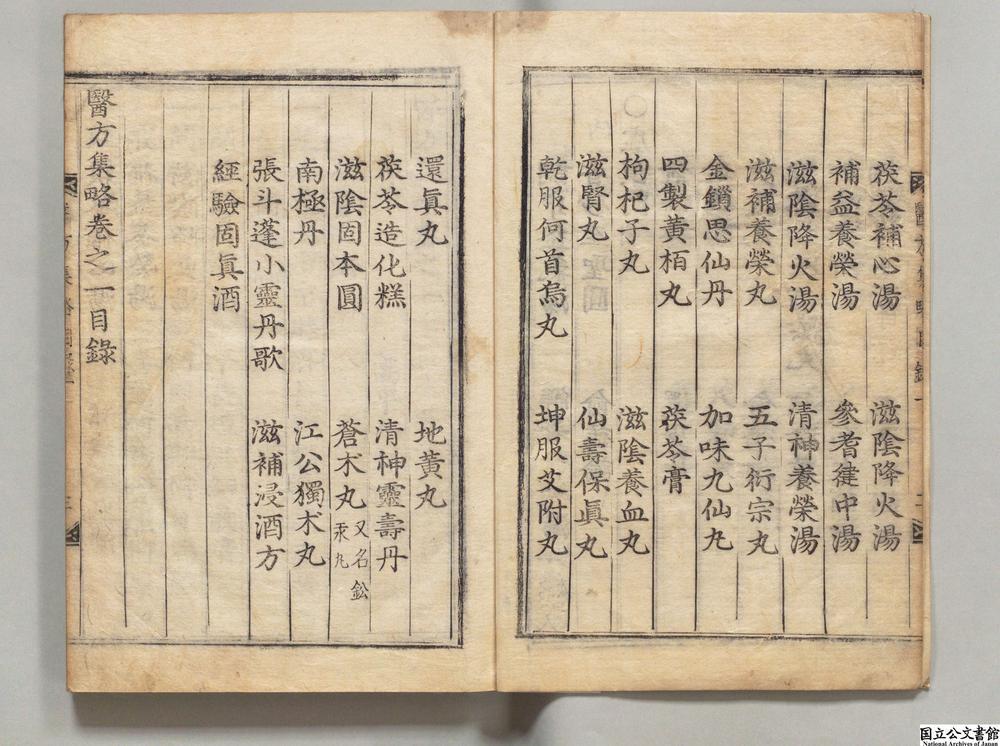 茯苓補心湯　滋陰降火湯
補益養榮湯　參耆健中湯
滋陰降火湯　清神養榮湯
滋補養榮丸　五子衍宗丸
金鎖思仙丹　加味九仙丸
四製黃栢丸　茯苓膏
枸杞子丸　滋陰養血丸
滋腎丸　仙壽保眞丸
乾服何首烏丸　坤服艾附丸
還眞丸　地黃丸
茯苓造化糕　清神靈壽丹
滋陰固本圓　蒼朮丸 又名鈆汞丸
南極丹　江公獨朮丸
張斗蓬小靈丹歌　滋補浸酒方
經驗固眞酒
醫方集略卷之一目錄
国立公文書館
National Archives of Japan